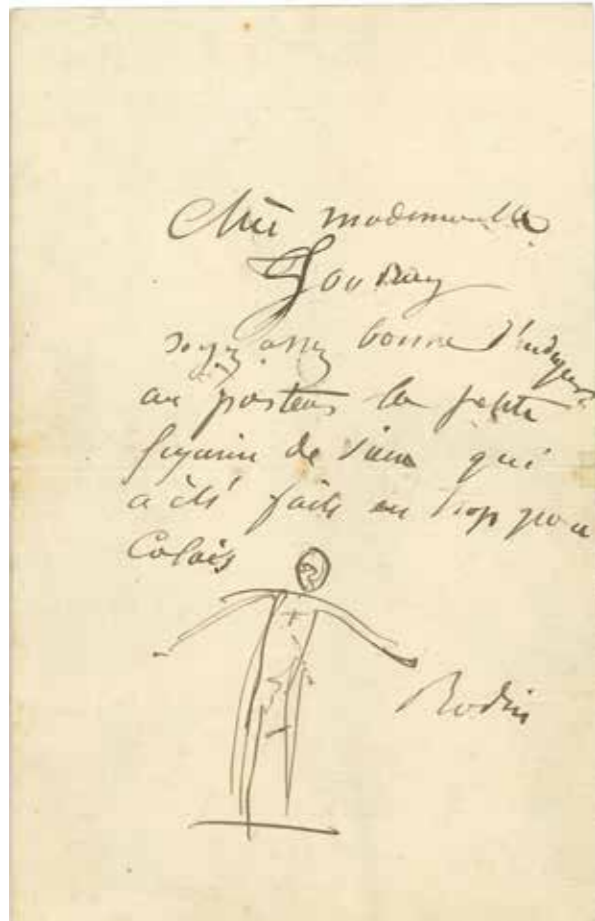 Chère mademoiselle
soyez assez bonne d'indiquer
au porteur la petite
figurine de qui
a été faite en trop pour
Calais
Rodin